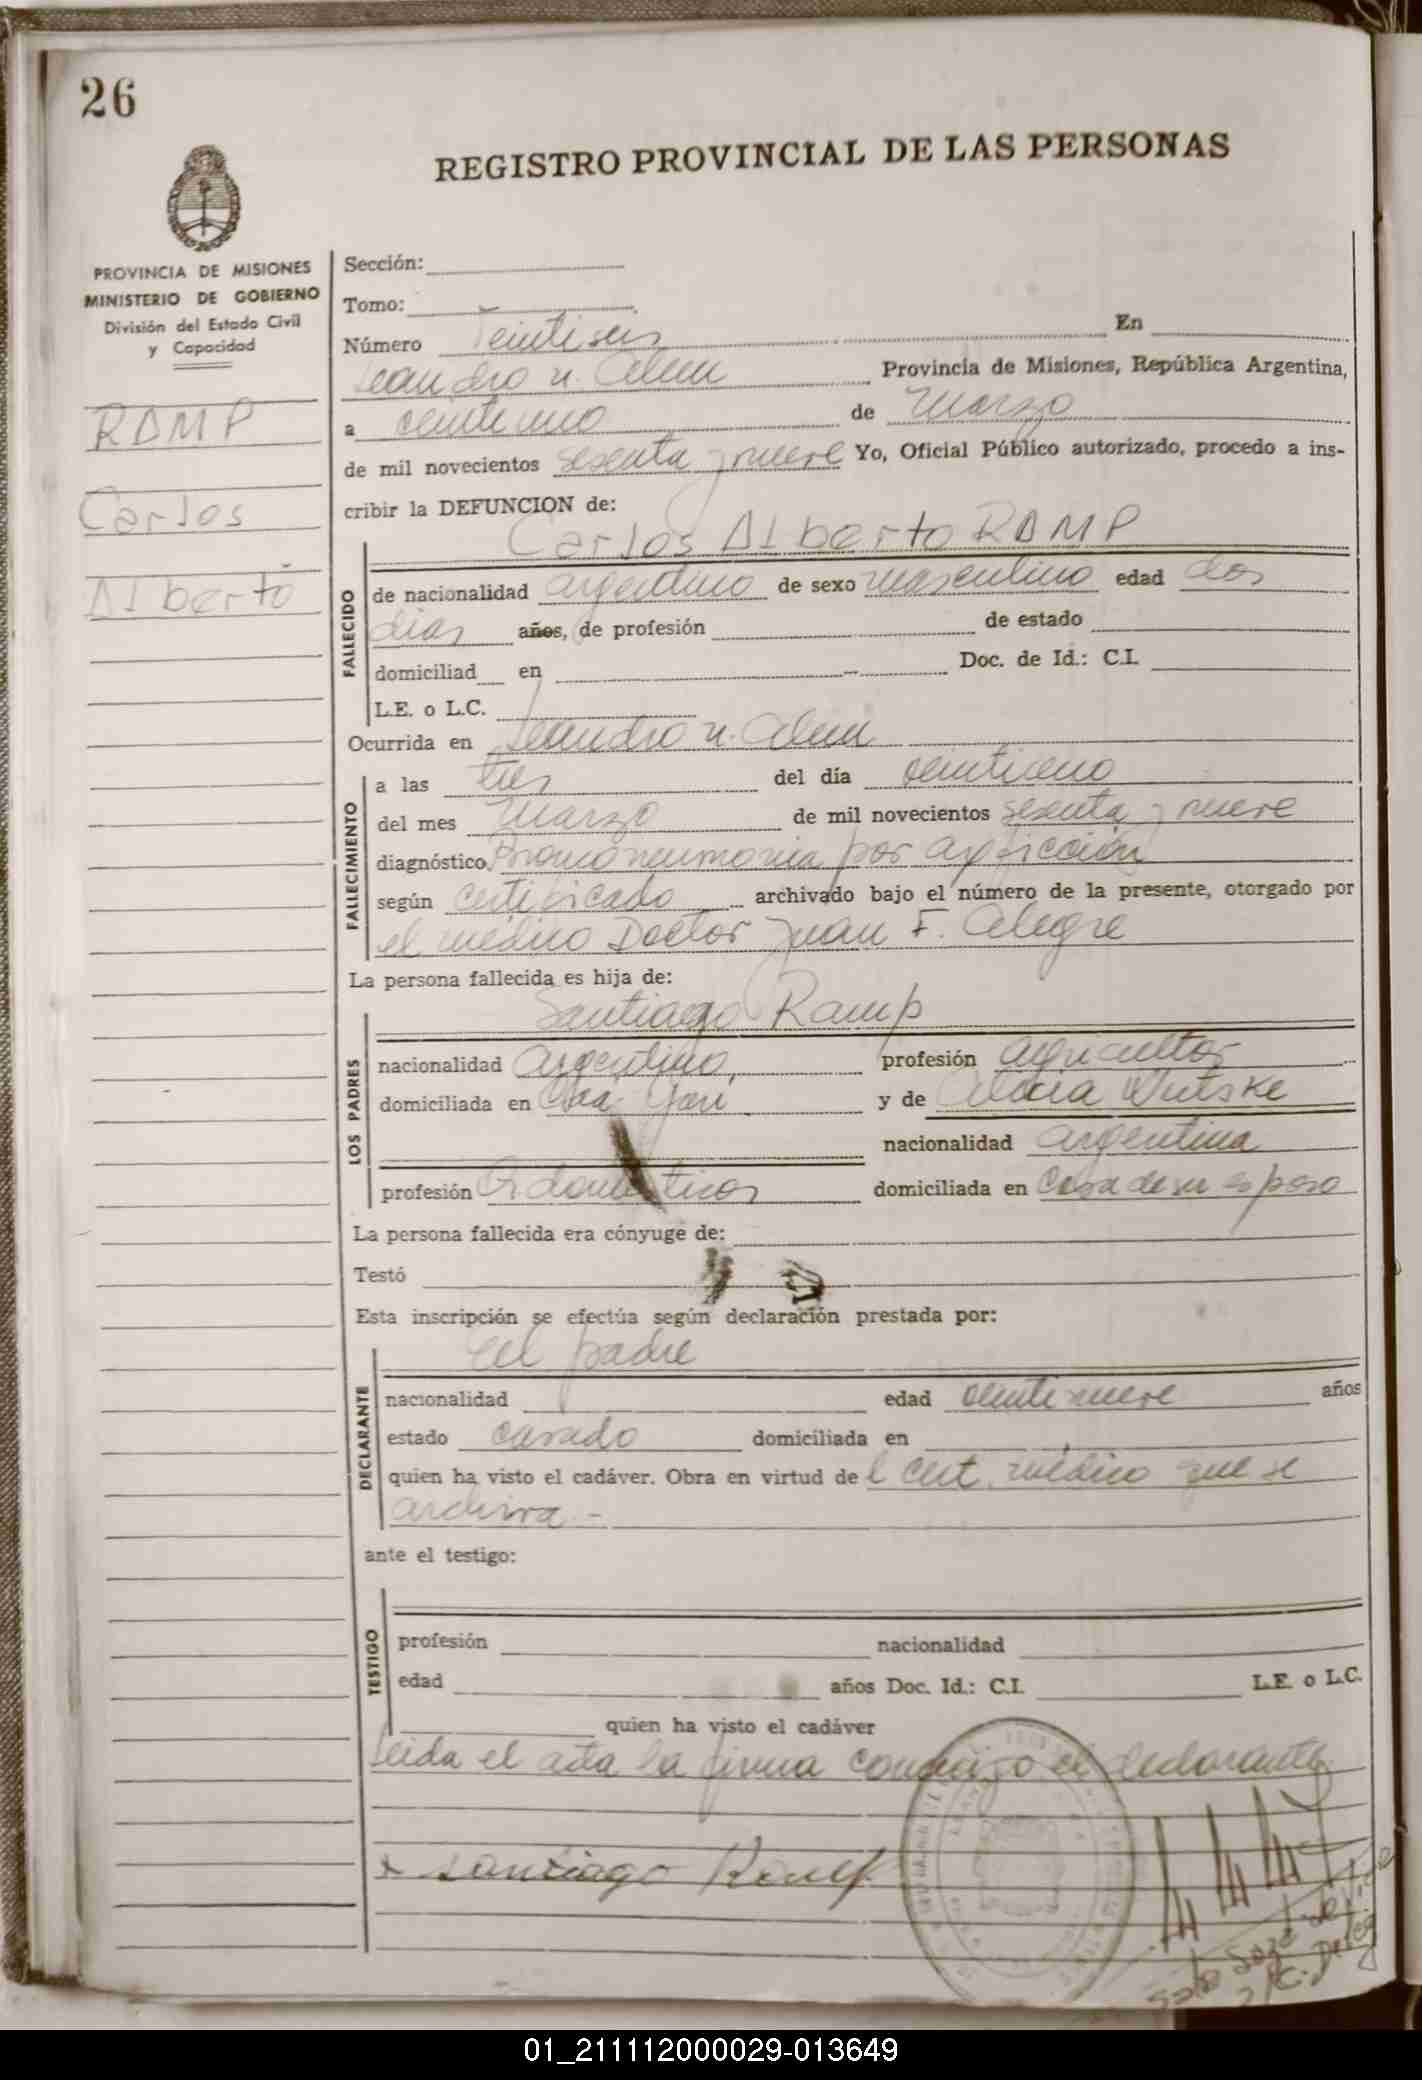 26
REGISTRO PROVINCIAL DE LAS PERSONAS
PROVINCIA DE MISIONES
MINISTERIO DE GOBIERNO
División del Estado Civil
y Capacidad
RAMP
Carlos
Alberto
Sección:
Tomo:
Número Veintiseis En
Leandro N. Alem Provincia de Misiones, República Argentina,
a veintiuno de Marzo
de mil novecientos sesenta y nueve Yo, Oficial Público autorizado, procedo a ins-
cribir la DEFUNCION de:
Carlos Alberto RAMP
FALLECIDO
de nacionalidad argentino de sexo masculino edad dos
dias años, de profesión de estado
domiciliad en Doc. de Id.: C.I.
L.E. o L.C.
Ocurrida en Leandro N. Alem
FALLECIMIENTO
a las tres del día veintiuno
del mes Marzo de mil novecientos sesenta y nueve
diagnóstico Bronconeumonia por
según certificado archivado bajo el número de la presente, otorgado por
el médico Doctor Juan F. Alegre
La persona fallecida es hija de:
Santiago Ramp
LOS PADRES
nacionalidad Argentino, profesión agricultor
domiciliada en Cerá y de Alicia
nacionalidad argentina
profesión Q. domésticos domiciliada en Casa de su esposo
La persona fallecida era cónyuge de:
Testó
Esta inscripción se efectúa según declaración prestada por:
el padre
DECLARANTE
nacionalidad edad veintinueve años
estado casado domiciliada en
quien ha visto el cadáver. Obra en virtud del cert. médico que se
archiva -
ante el testigo:
TESTIGO
profesión nacionalidad
edad años Doc. Id.: C.I. L.E. o L.C.
quien ha visto el cadáver
Leida el acta la firma conmigo el declarante
x Santiago Ramp
01_211112000029-013649